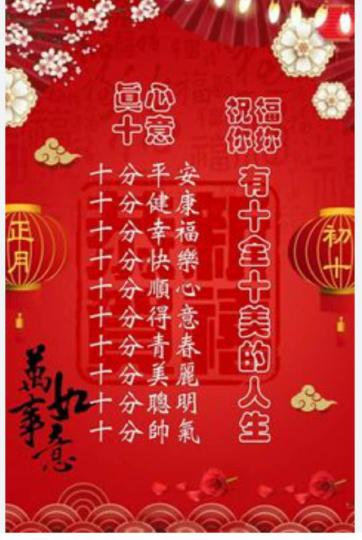 眞心
十意
祝福
你妳
有十全十美的人生
十分平安
十分健康
十分幸福
十分快樂
十分順心
十分得意
十分青春
十分美麗
十分聰明
十分帥氣
正月
初十
萬事如意